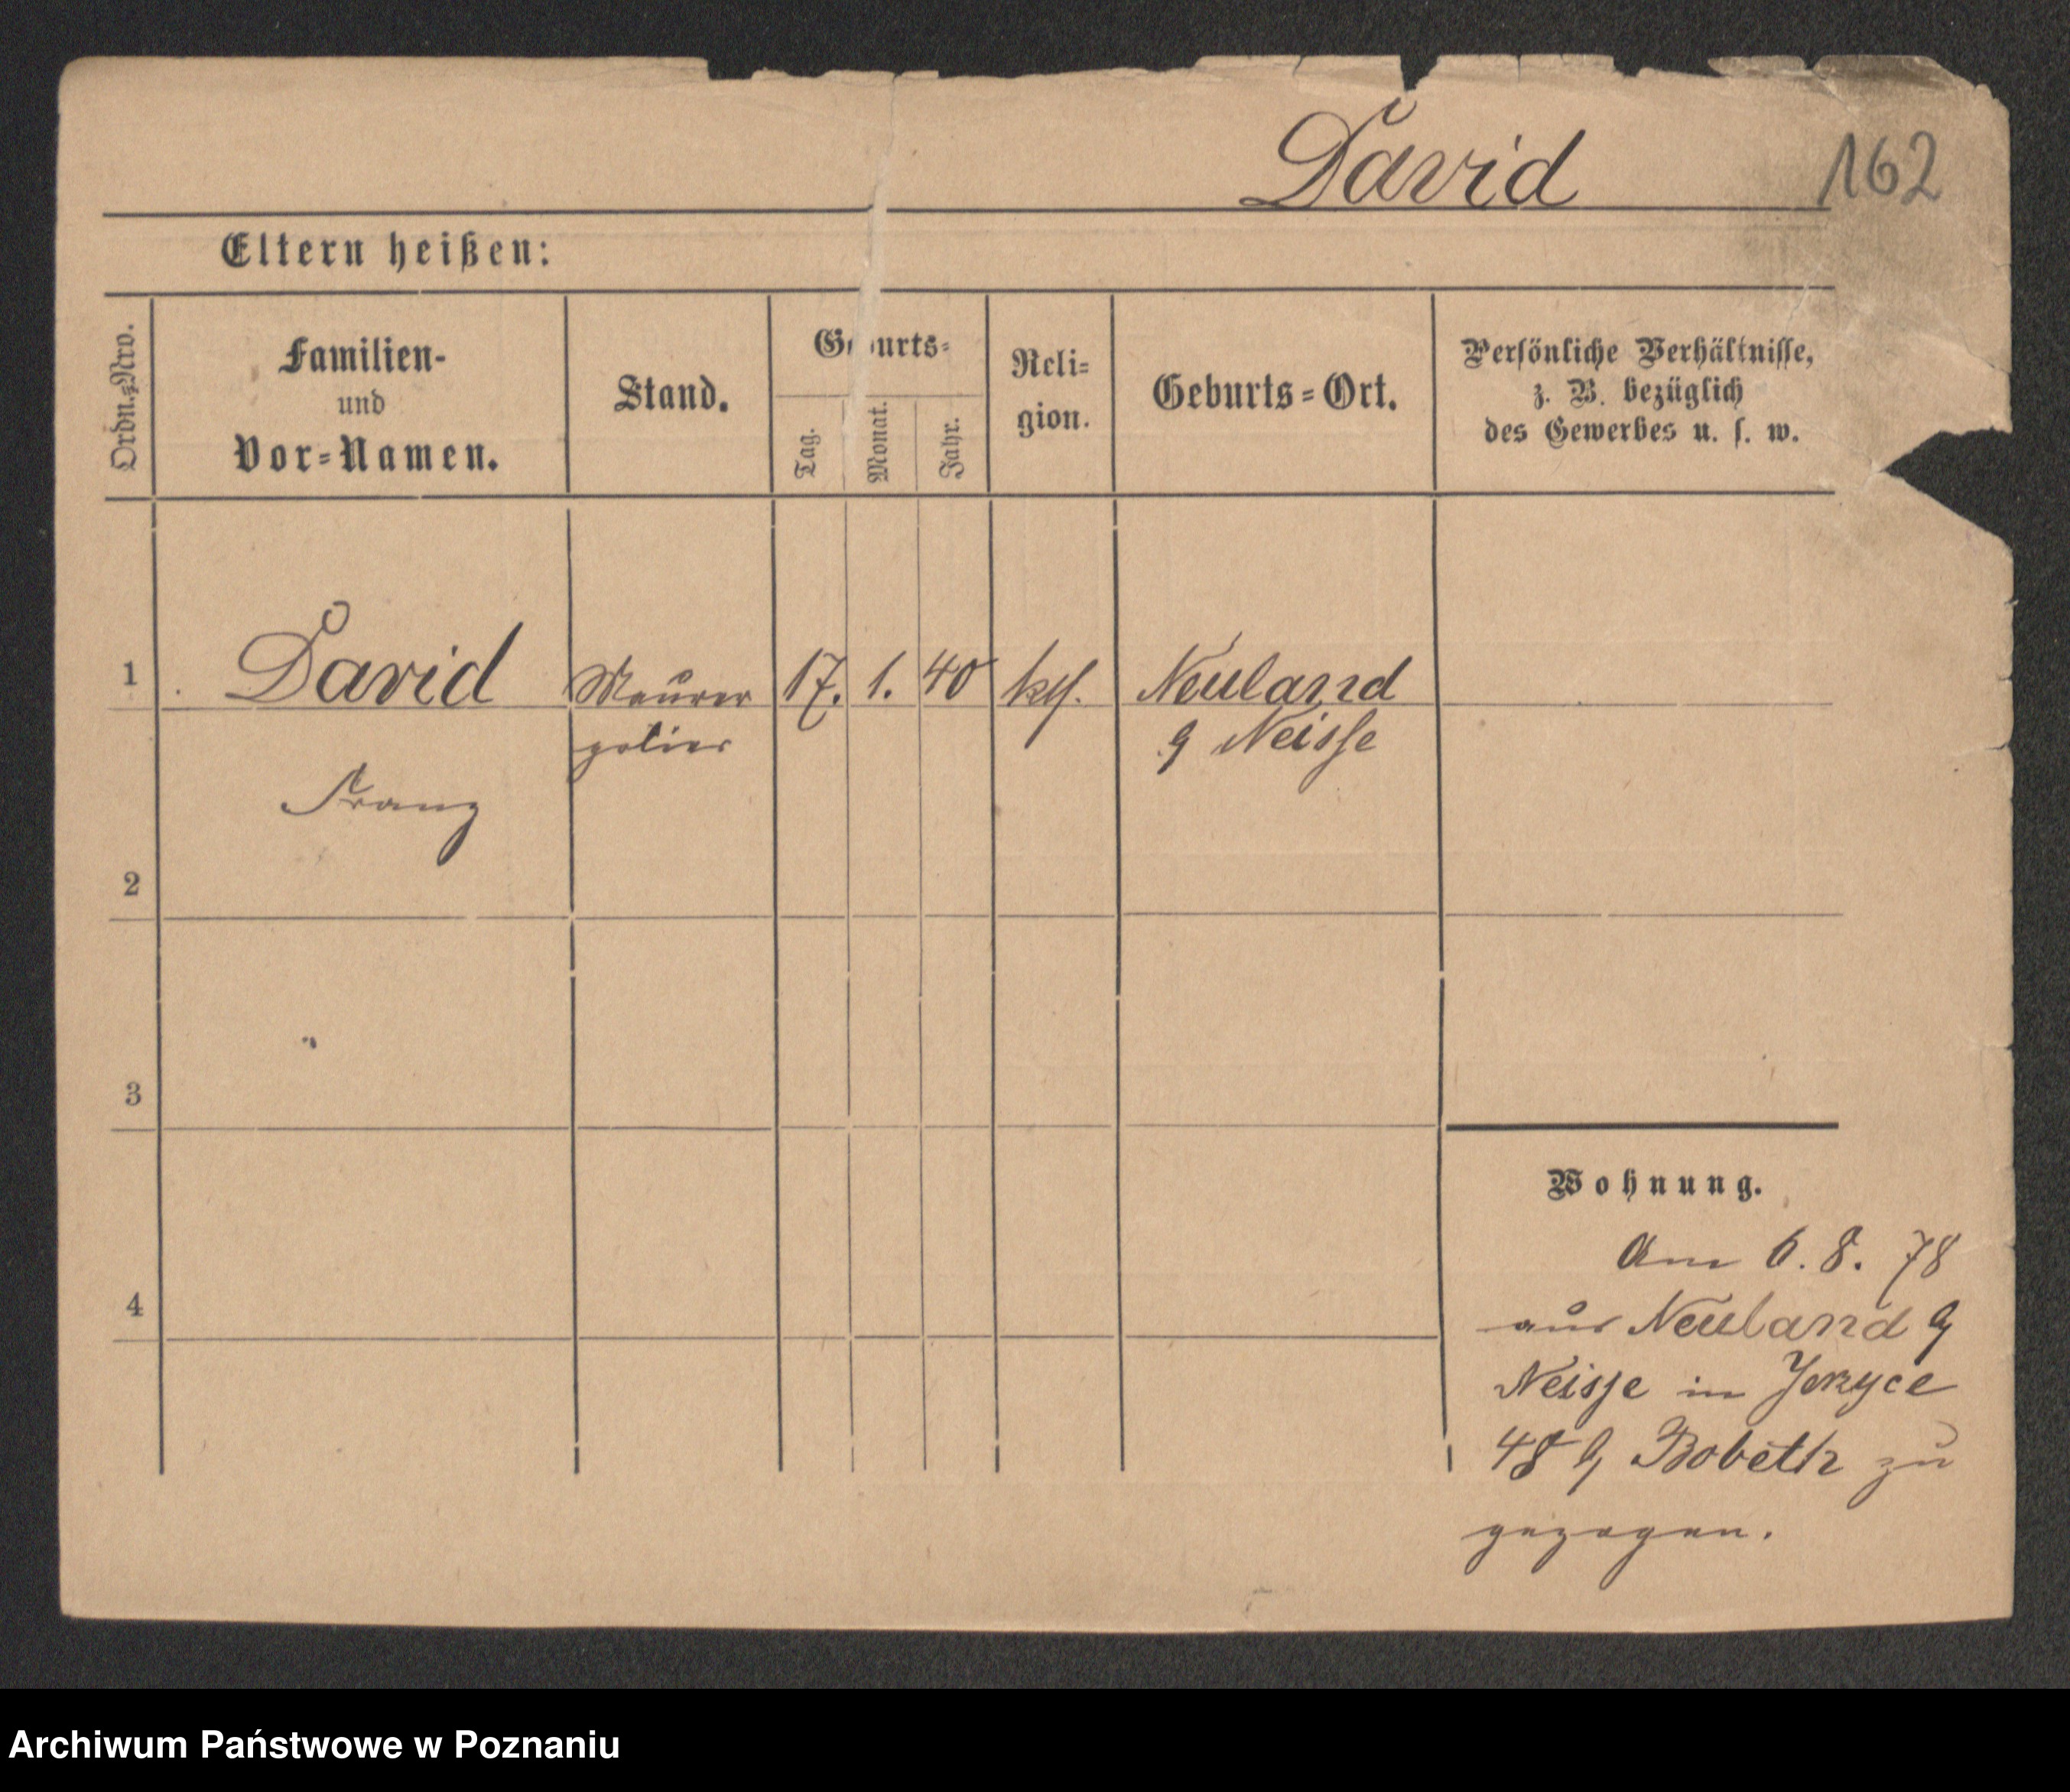 David 162
Eltern heißen:
Ordn.-Nro.
Familien-
und
Vor-Namen.
Stand.
Geburts-
Tag.
Monat.
Jahr.
Reli-
gion.
Geburts-Ort.
Persönliche Verhältnisse,
z. B. bezüglich
des Gewerbes u. s. w.
1 David Maurer 17. 1. 40 kth. Neuland
polier
Neisse
Franz
2
3
4
Wohnung.
Am 6. 8. 78
aus Neuland
Neisse in Jerzyce
48 Bobeth zu
gezogen.
Archiwum Państwowe w Poznaniu